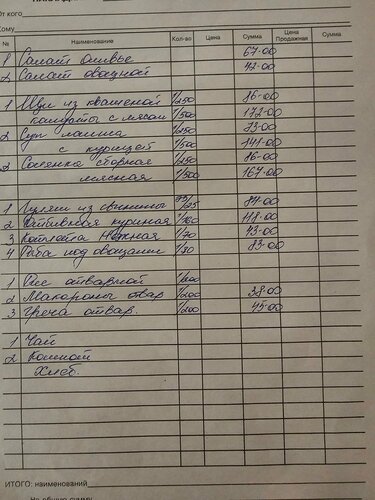 От кого
Кому
№ Наименование Кол-во Цена Сумма Цена Продажная Сумма
1 Салат Оливье 67-00
2 Салат овощной 42-00
1 Щи из квашеной 1/250 86-00
капусты с мясом 1/500 172-00
2 Суп лапша 1/250 73-00
с курицей 1/500 141-00
2 Солянка сборная 1/250 86-00
мясная 1/500 167-00
1 Гуляш из свинины 84-00
2 Отбивная куриная 118-00
3 Котлета Нежная 1/70 43-00
4 Рыба под овощами 1/80 83-00
1 Рис отварной 1/200
2 Макароны отвар 1/200 38-00
3 Греча отвар. 1/200 45-00
1 Чай
2 Компот
Хлеб.
ИТОГО: наименований
На общую сумму